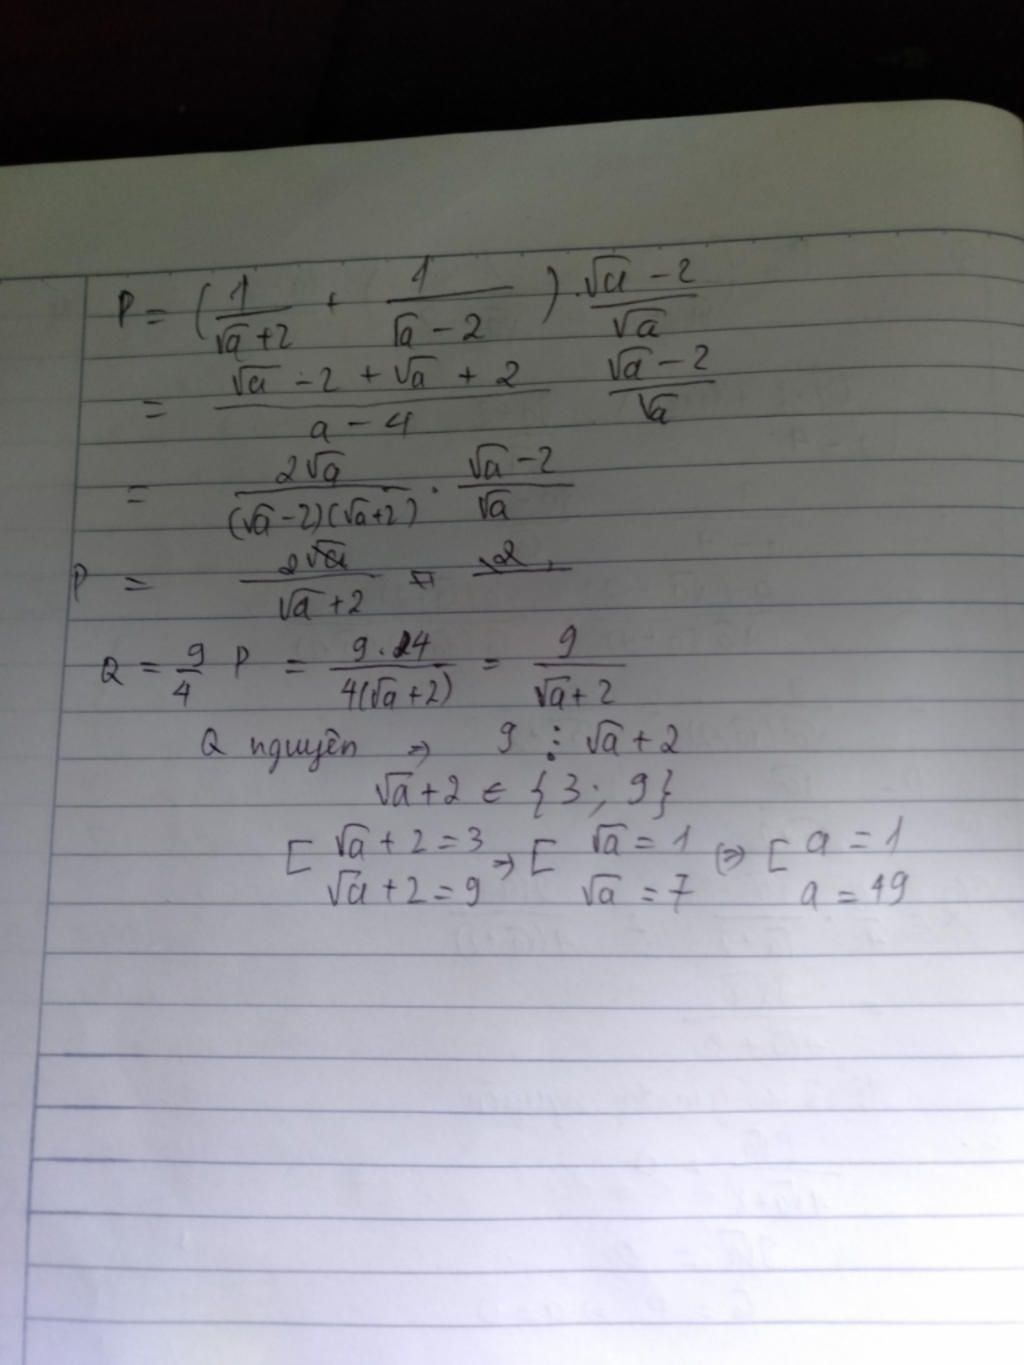 P = ( 1/(√a + 2) + 1/(√a - 2) ) . (√a - 2)/√a
= (√a - 2 + √a + 2)/(a - 4) (√a - 2)/√a
= 2√a/((√a - 2)(√a + 2)) . (√a - 2)/√a
P = 2√a/(√a + 2) = 2
Q = 9/4 P = 9.24/(4(√a + 2)) = 9/(√a + 2)
Q nguyên => 9 ⋮ √a + 2
√a + 2 ∈ {3; 9}
[ √a + 2 = 3 => [ √a = 1 (=> [ a = 1
√a + 2 = 9 √a = 7 a = 49